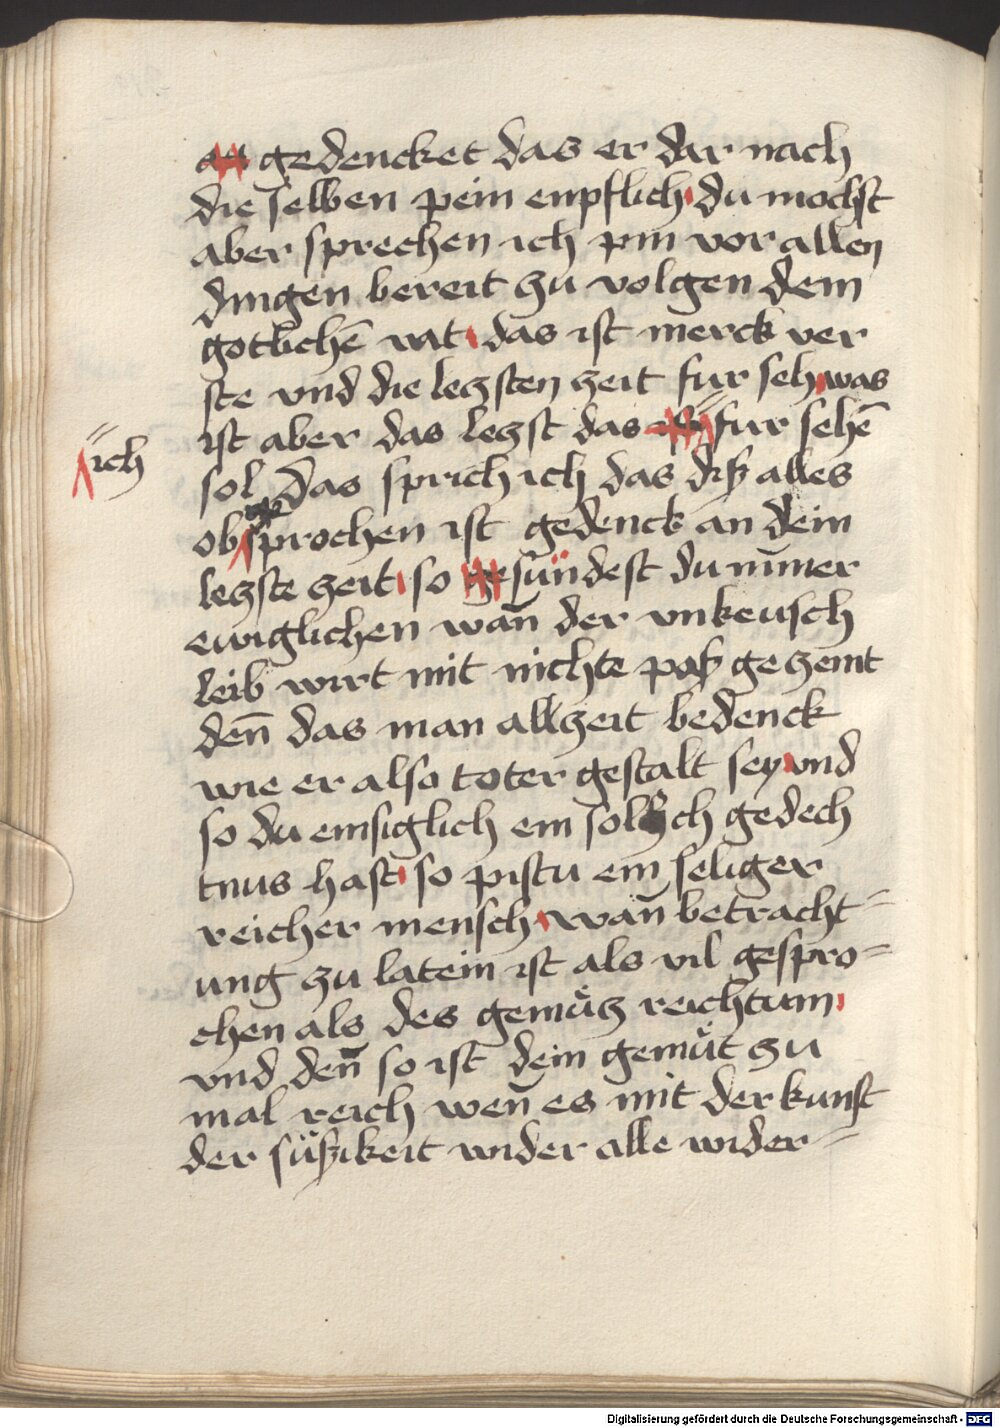 gedencket das er dar nach
die selben pein enpflich du mochst
aber sprechen ich pin vor allen
dingen bereit zu volgen dem
gotlichē rat das ist merck ver
ste vnd die leczsten zeit fur seh was
ist aber das leczst das fur sehē
ich
sol Das sprich ich das diß alles
ob gesprochen ist gedenck an dein
leczste zeit so sündest du nimer
ewiglichen wan̄ der vnkeusch
leib wirt mit nichte paß gezemt
den̄ das man allzeit bedenck
wie er also toter gestalt sey vnd
so du emsiglich ein solch gedech
tnus hast so pistu ein seliger
reicher mensch wan̄ betracht
ung zu latein ist als vil gespro
chen als des gemücz reichtum
vnd den̄ so ist dein gemüt zu
mal reich wen̄ es mit der kunst
der süßikeit wider alle wider
Digitalisierung gefördert durch die Deutsche Forschungsgemeinschaft - DFG